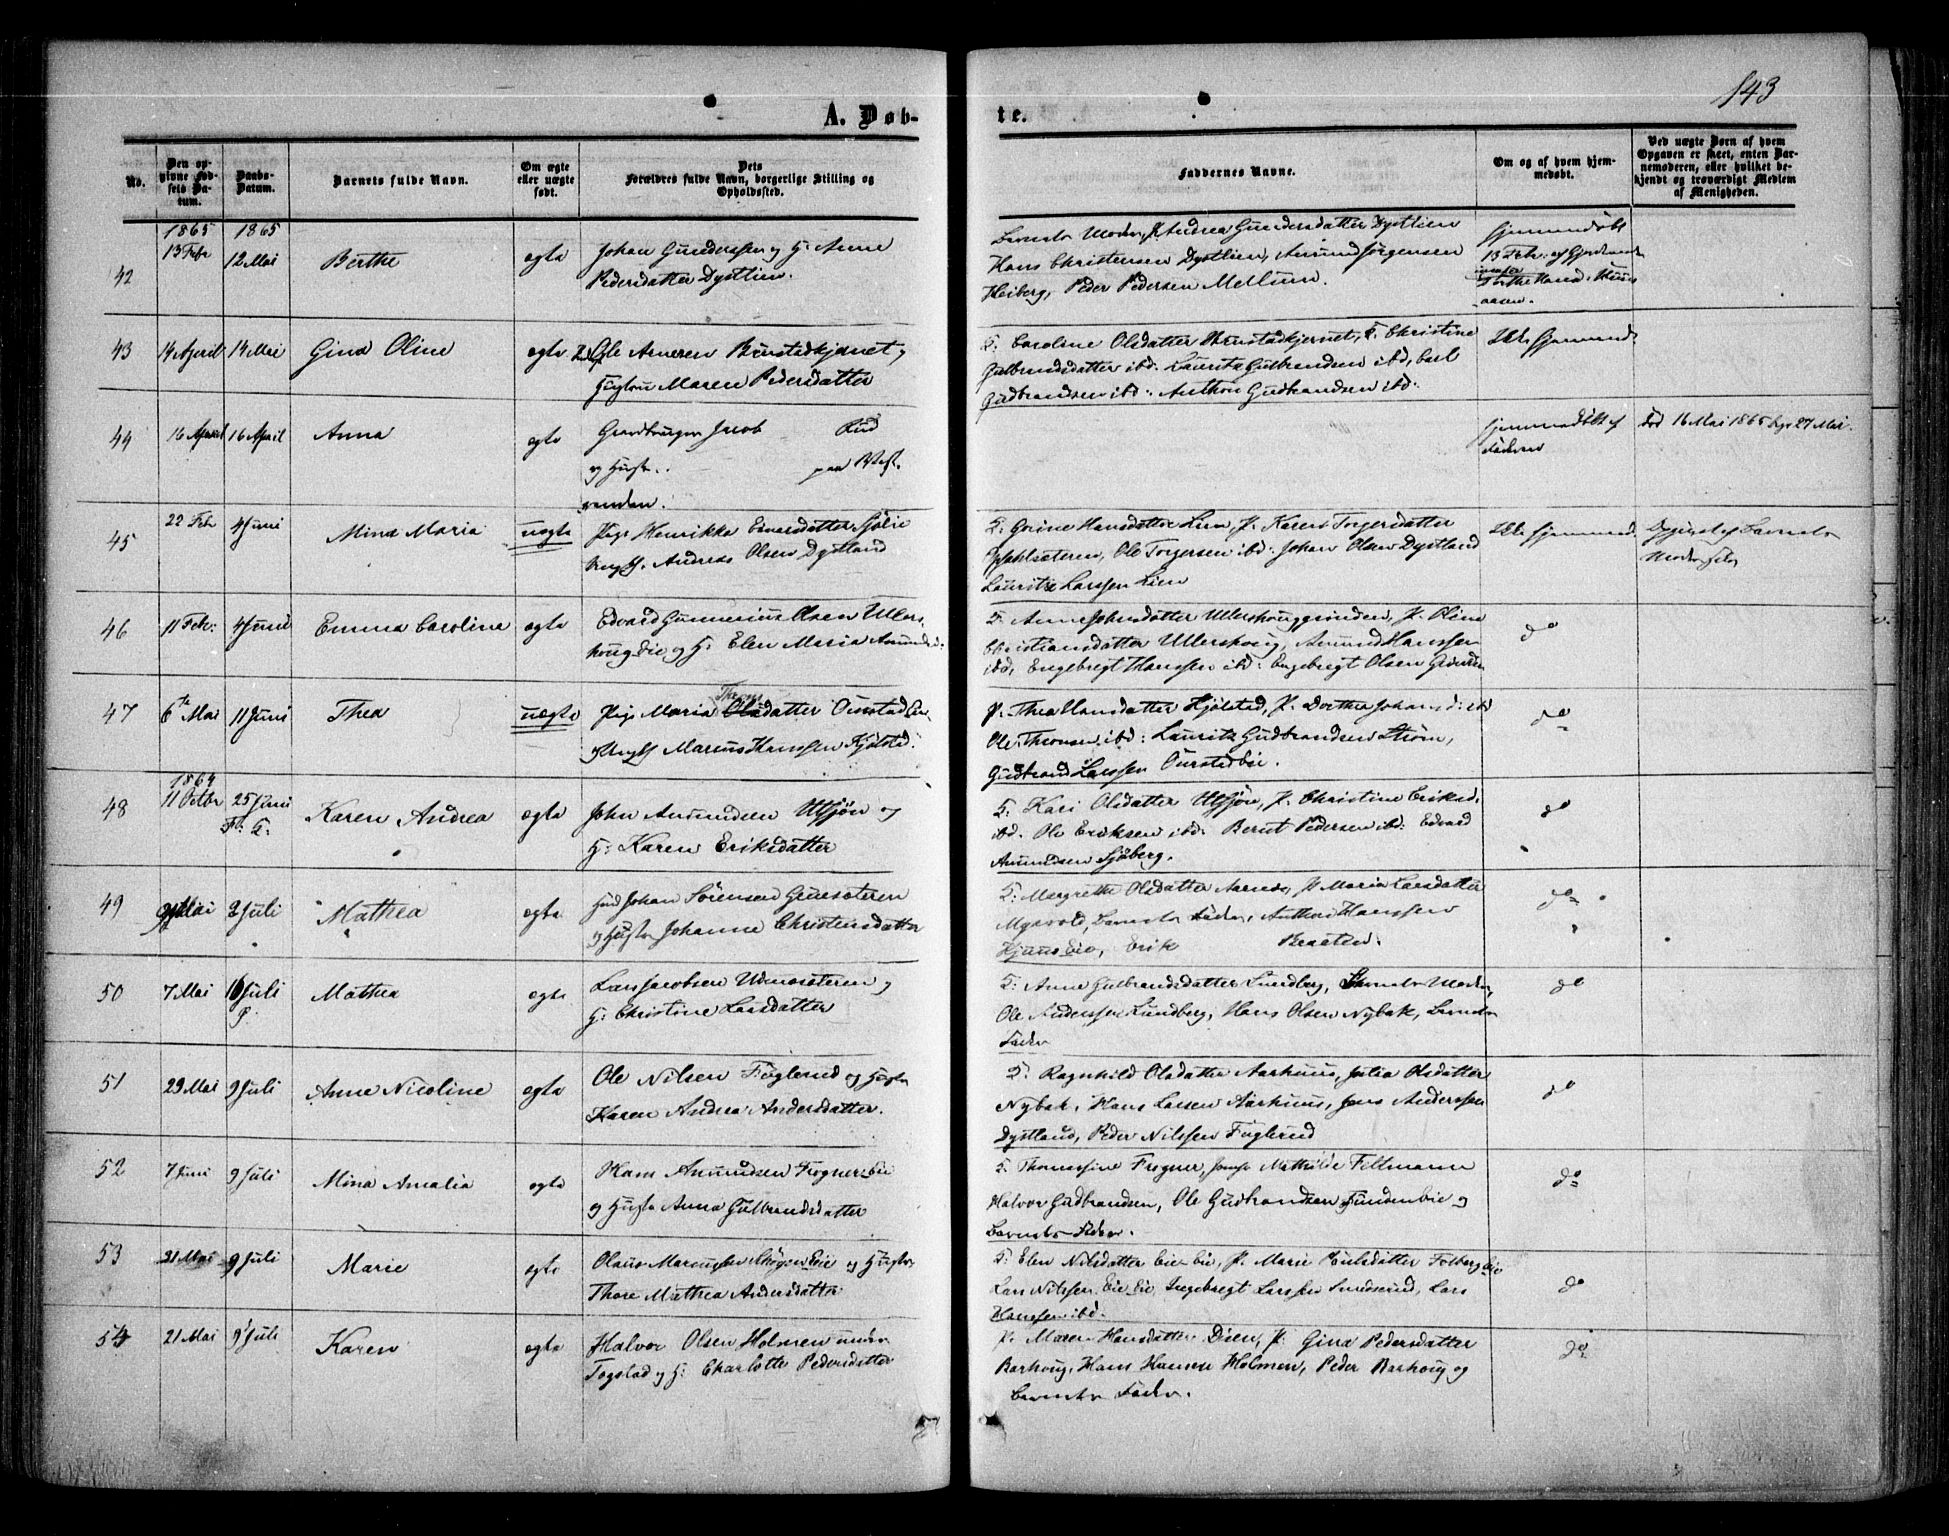 143
A. Døb-
te.
No.
Den op-
givne Fød-
sels Da-
tum.
Daabs-
Datum.
Barnets fulde Navn.
Om ægte
eller uægte
født.
Dets
Forældres fulde Navn, borgerlige Stilling og
Opholdssted.
Faddernes Navne.
Om og af hvem hjem-
medøbt.
Ved uægte Børn af hvem
Opgaven er skeet, enten Bar-
nemoderen, eller hvilket be-
kjendt og troværdigt Medlem
af Menigheden.
42
1865
13 Febr
1865
12 Mai
Berthe
ægte
Johan Gunderssen og H. Anne
Pedersdatter Dystlien.
Barnets Moder, P. Andrea Gundersdatter Dystlien
Hans Christensen Dystlien, Amund Jørgensen
Heiberg, Peder Pedersen Mellum.
Hjemmedøbt
13 Febr. af
aasen.
43
14 April
14 Mai
Gina Oline
ægte
Ole Arnesen Bunstadkjernet og
Hustru Maren Pedersdatter
G. Caroline Olsdatter Bunstadkjernet, G. Christine
Gulbrandsdatter ibd: Lauritz Gulbrandsen ibd, Carl
Gudbrandsen ibd: Anthon Gudbrandsen ibd:
Ikke hjemmed.
44
16 April
16 April
Anna
ægte
Jacob Rud
og Hust. paa
Hjemmedøbt af
Faderen
død 16 Mai 1865 27 Mai.
45
22 Febr
4 Juni
Mina Maria
uægte
Pige Henrikke Edvardsdatter Sjølie
Ungk. Andreas Olsen Dystland
G. Gorine Hansdatter Lien, P. Karen Torgersdatter
Ole Torgersen ibd: Johan Olsen Dystland
Lauritz Larssen Lien
Ikke hjemmed.
Opgivet af Barnets
Moder
46
11 Febr:
4 Juni
Emma Caroline
ægte
Edvard Gunnerius Olsen Ullers-
houg Eie og H: Elen Maria Amundsd:
G. Anne Johnsdatter Ullershouggrinden, P. Oline
Christiansdatter Ullershoug, Amund Hanssen
ibd, Engebregt Hanssen ibd: Engebregt Olsen Grinden
do
47
6te Mai
11 Juni
Thea
uægte
Throns
Pige Maria Olsdatter Ourstad Eie
og Ungk Marius Hanssen Kjølstad.
P. Thea Hansdatter Kjølstad, P. Dorthea Johansd: ibd
Ole Thronsen ibd: Lauritz Gudbrandsen Strøm,
Gudbrand Larssen Ourstadeie.
do
48
1864
11 Octbr
25 Juni
Fl: G:
Karen Andrea
ægte
John Amundsen Utsjøn og
H: Karen Eriksdatter
G: Kari Olsdatter Utsjøn, P. Christine Eriksd:
ibd. Ole Eriksen ibd: Bernt Pedersen ibd: Edvard
Amundsen Sjøberg.
do
49
Mai
2 Juli
Mathea
ægte
Johan Sørensen Gruesæteren
og Hustru Johanne Christensdatter
G: Margrethe Olsdatter Aarnes, P. Maria Larsdatter
Myrvold, Barnets Fader, Anthon Hanssen
Hjunseie, Erik Braaten.
do
50
7 Mai
16 Juli
P.
Mathea
ægte
Lars Jacobsen Udnessæteren og
H: Christine Larsdatter
G: Anne Gulbrandsdatter Lundberg, Barnets Moder,
Ole Anderssen Lundberg, Hans Olsen Nybak, Barnets
Fader
do
51
29 Mai
9 Juli
Anne Nicoline
ægte
Ole Nilsen Fuglerud og Hustru
Karen Andrea Andersdatter.
G. Ragnhild Olsdatter Aarhuus, Julia Olsdatter
Nybak, Hans Larsen Aarhuus, Jens Anderssen
Dystland, Peder Nilssen Fuglerud
do
52
7 Juni
9 Juli
Mina Amalia
ægte
Hans Amundsen Frognereie
og Hustru Anna Gulbrandsdatter
G. Thomassine Frogner, Jomfr Mathilde Feltmann
Halvor Gudbrandsen, Ole Gudbrandsen Fundeneie og
Barnets Fader.
do
53
21 Mai
9 Juli
Marie
ægte
Olaus Marcussen Eie og Hustru
Thore Mathea Andersdatter
G: Elen Nilsdatter Eie Eie, P. Marie Poulsdatter
Lars Nilssen Eie Eie, Ingebregt Larssen Sundserud, Lars
Hanssen ibd.
do
54
21 Mai
9 Juli
Karen
ægte
Halvor Olsen Holmen under
Togstad og H: Charlotte Pedersdatter
P. Maren Hansdatter Disen, P. Gina Pedersdatter
Barhoug, Hans Hansen Holmen, Peder Barhoug og
Barnets Fader.
do